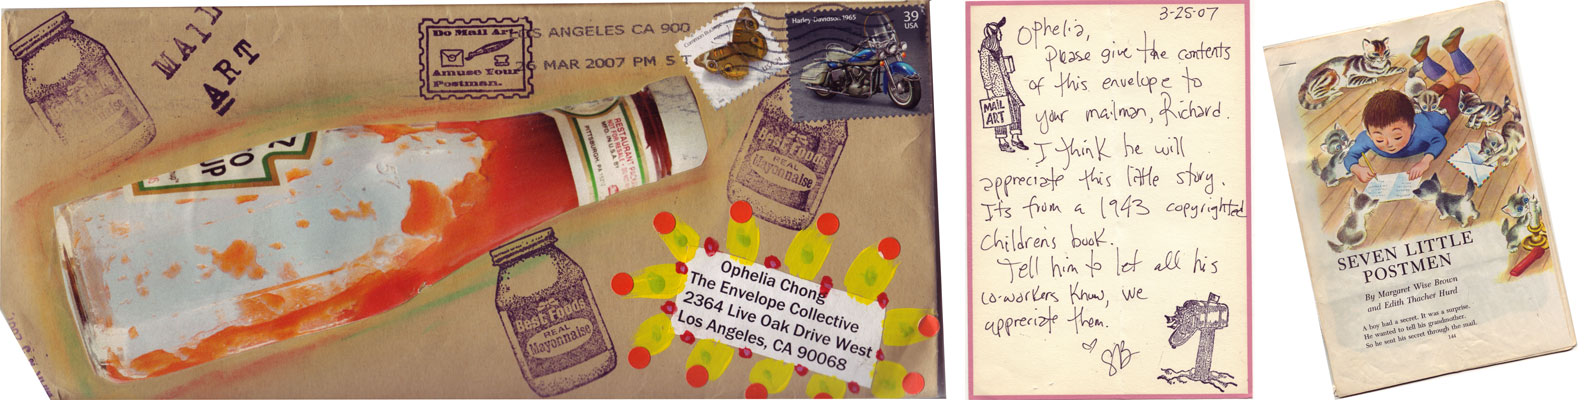 MAIL
ART
Do Mail Art
Amuse Your
Postman.
LOS ANGELES CA 900
26 MAR 2007 PM 5 T
Harley-Davidson 1965
39
USA
RESTAURANT PACK
NOT FOR RESALE
MFD. IN U.S.A. BY
PITTSBURGH, PA
57
Best Foods
REAL
Mayonnaise
Best Foods
REAL
Mayonnaise
Ophelia Chong
The Envelope Collective
2364 Live Oak Drive West
Los Angeles, CA 90068
3-25-07
Ophelia,
Please give the contents
of this envelope to
your mailman, Richard.
MAIL
ART
I think he will
appreciate this little story.
Its from a 1943 copyrighted
children's book.
Tell him to let all his
co-workers know, we
appreciate them.
SB
SEVEN LITTLE
POSTMEN
By Margaret Wise Brown
and Edith Thacher Hurd
A boy had a secret. It was a surprise.
He wanted to tell his grandmother.
So he sent his secret through the mail.
144